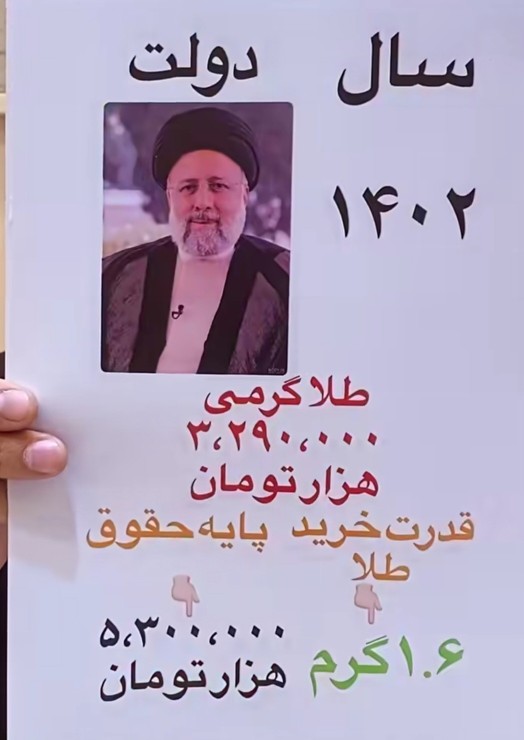 سال دولت
۱۴۰۲
طلا گرمی
۳،۲۹۰،۰۰۰
هزار تومان
قدرت خرید پایه حقوق
طلا
۱.۶ گرم ۵،۳۰۰،۰۰۰
هزار تومان